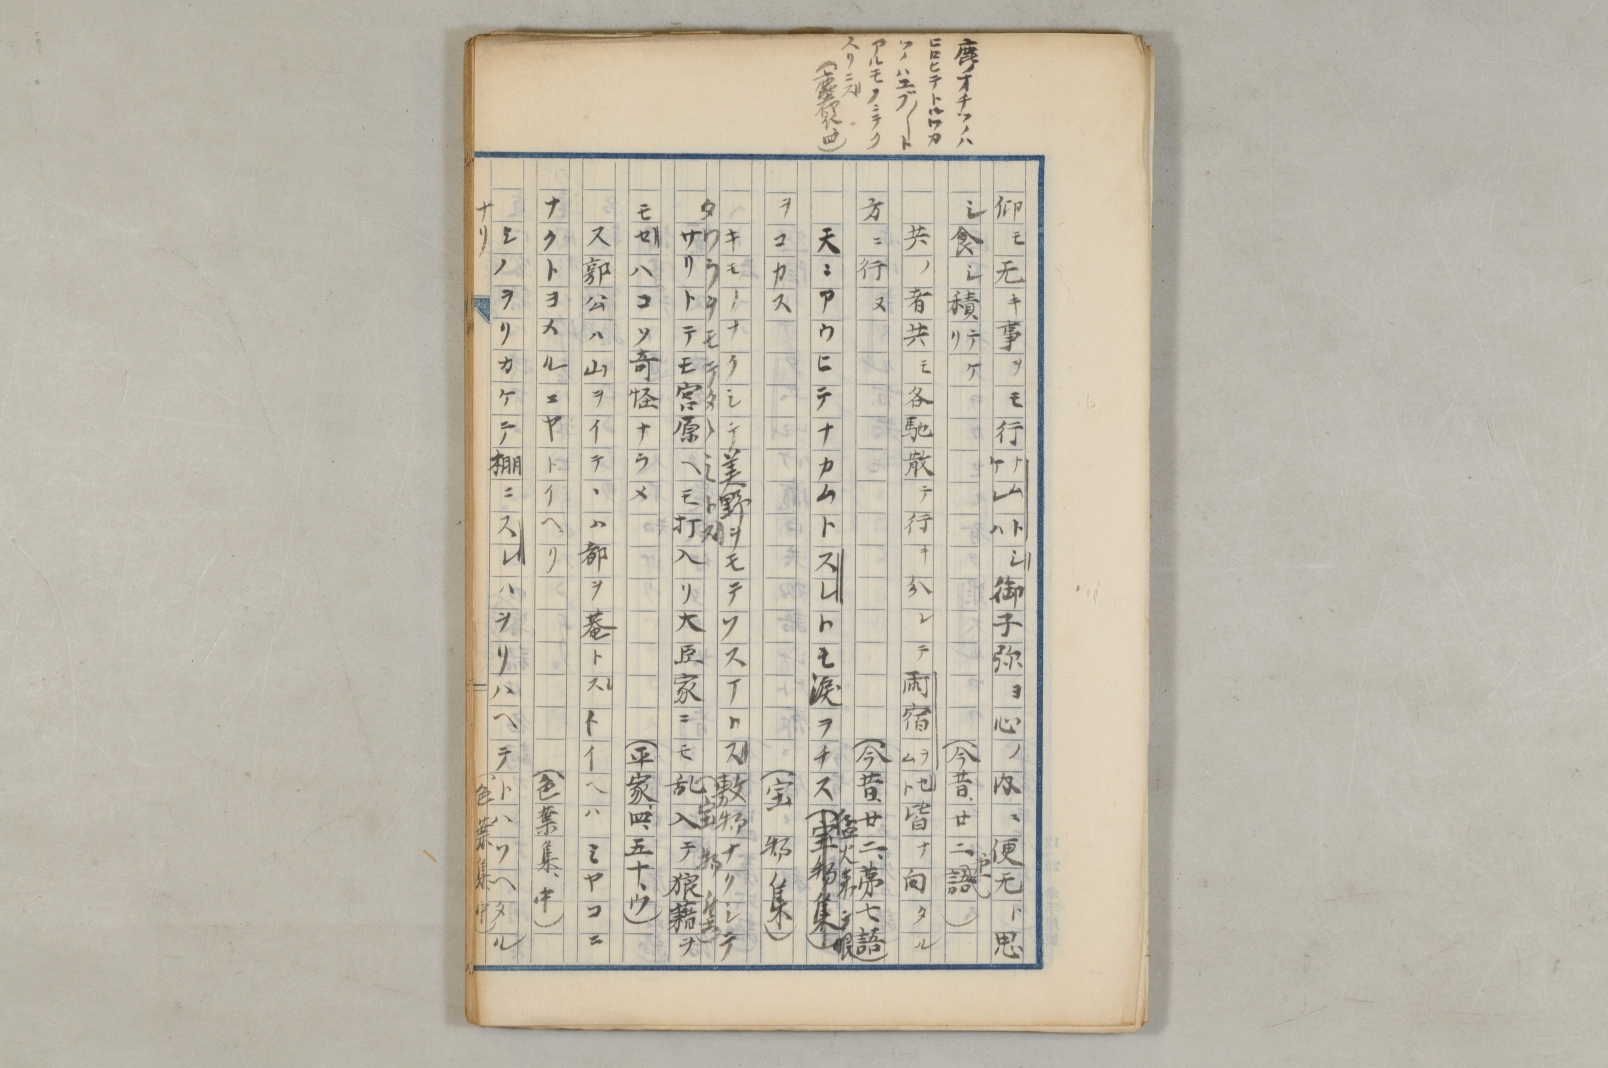 鹿ノオチツノハ
ヒロヒテトルワカ
ツノハエブ
アルモノニテク
スリニス
仰モ无キ事ヲモ行ナムトシ御子弥ヨ心ノ内ニ便无ト思
ケレハ
シ食シ積リテケ
(今昔、廿二、語)
共ノ者共モ各馳散テ行キ分レテ雨宿ヲセムト皆ナ向タル
方ニ行ヌ
(今昔、廿二、第七語)
天ニアウヒテナカムトスレトモ涙ヲチス(宝物集)
猛火燃テ眼
ヲコカス
(宝物集)
キモノナクシテ美野ヲモテワスイロス敷物ナクシテ
タワラヲモテタヽミトス
(宝物集)
サリトテモ宮原ヘモ打入リ大臣家ニモ乱入テ狼藉ヲ
モセハコソ奇怪ナラメ
(平家、四、五十、ウ)
ス郭公ハ山ヲイテヽハ都ヲ菴トストイヘハミヤコニ
ナクトヨメルニヤトイヘリ
(色葉集、中)
ミノヲリカケテ棚ニスレハヲリハヘテトハツヘタル
ナリ
(色葉集中)